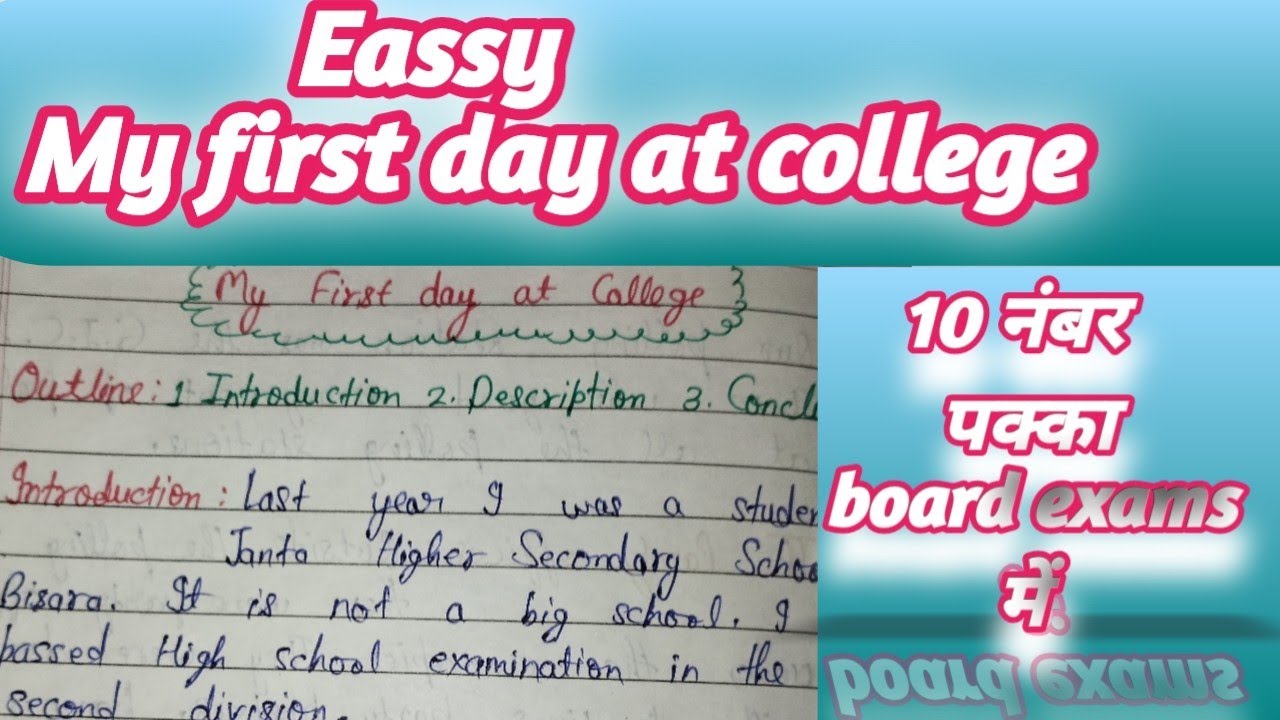 Eassy
My first day at college
My First day at College
Outline: 1 Introduction 2. Description 3. Concl
Introduction: Last year I was a studen
Janta Higher Secondary Schoo
Bisara. It is not a big school. I
passed High school examination in the
second division.
10 नंबर
पक्का
board exams
में